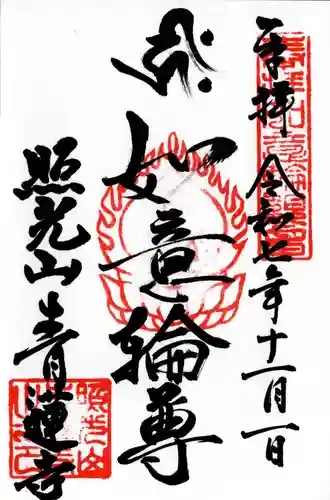 奉拝 令和七年十一月一日
如意輪尊
照光山青蓮寺